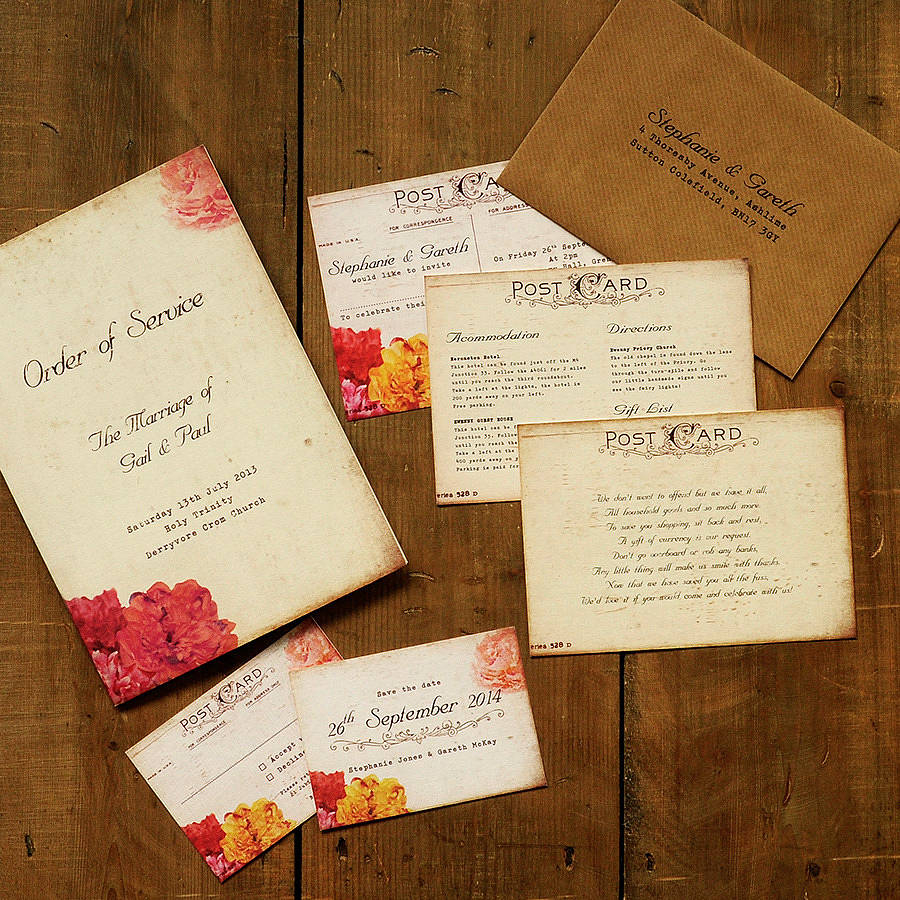 Order of Service
The Marriage of
Gail & Paul
Saturday 13th July 2013
Holy Trinity
Derryvore Crom Church
POST CA
FOR CORRESPONDENCE
FOR ADDRESS
MADE IN U.S.A.
Stephanie & Gareth
would like to invite
To celebrate their
On Friday 26th Septe
At 2pm
Hall, Gren
Stephanie & Gareth
4 Thoresby Avenue, Ashlime
Sutton Colefield, BN17 3GY
POST CARD
Acommodation
This hotel can be found just off the M4
Junction 35. Follow the A4061 for 2 miles
until you reach the third roundabout.
Take a left at the lights, the hotel is
200 yards away on your left.
Free parking.
EWENNY GUEST HOUSE
This hotel can be
Junction 35. Follow
until you reach the
Take a left at the
400 yards away on
Parking is paid for
eries 528 D
Directions
Ewenny Priory Church
The old chapel is found down the lane
to the left of the
through the turn-stile and follow
our little handmade signs until you
the fairy light
Gift List
POST CARD
We don't want to offend but we have it all,
All household goods and so much more.
To save you shopping, sit back and rest,
A gift of currency is our request.
Don't go overboard or rob any banks,
Any little thing will make us smile with thanks.
Now that we have saved you all the fuss,
We'd love it if you would come and celebrate with us!
eries 528 D
POST CARD
FOR CORRESPONDENCE
FOR ADDRESS ONLY
MADE IN U.S.A.
Accept
Decline
Please
Save the date
26th September 2014
Stephanie Jones & Gareth McKay